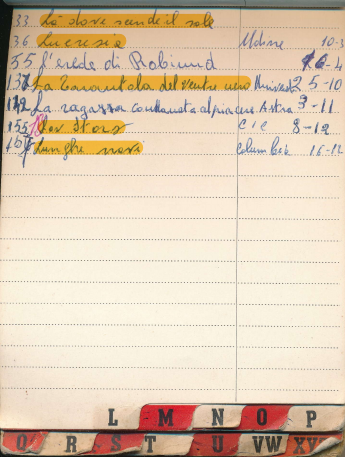 133. Là dove scende il sole
136. Lucrezia Udine 10-3
55 L'erede di Robin 16-4
137 La Tarantola del ventre nero Univest 25-10
142 La ragazza condannata al piacere Astra 3-11
155 Los CIC 8-12
Lunghe navi Columbia 16-12
L M N O P
Q R S T U VW XY